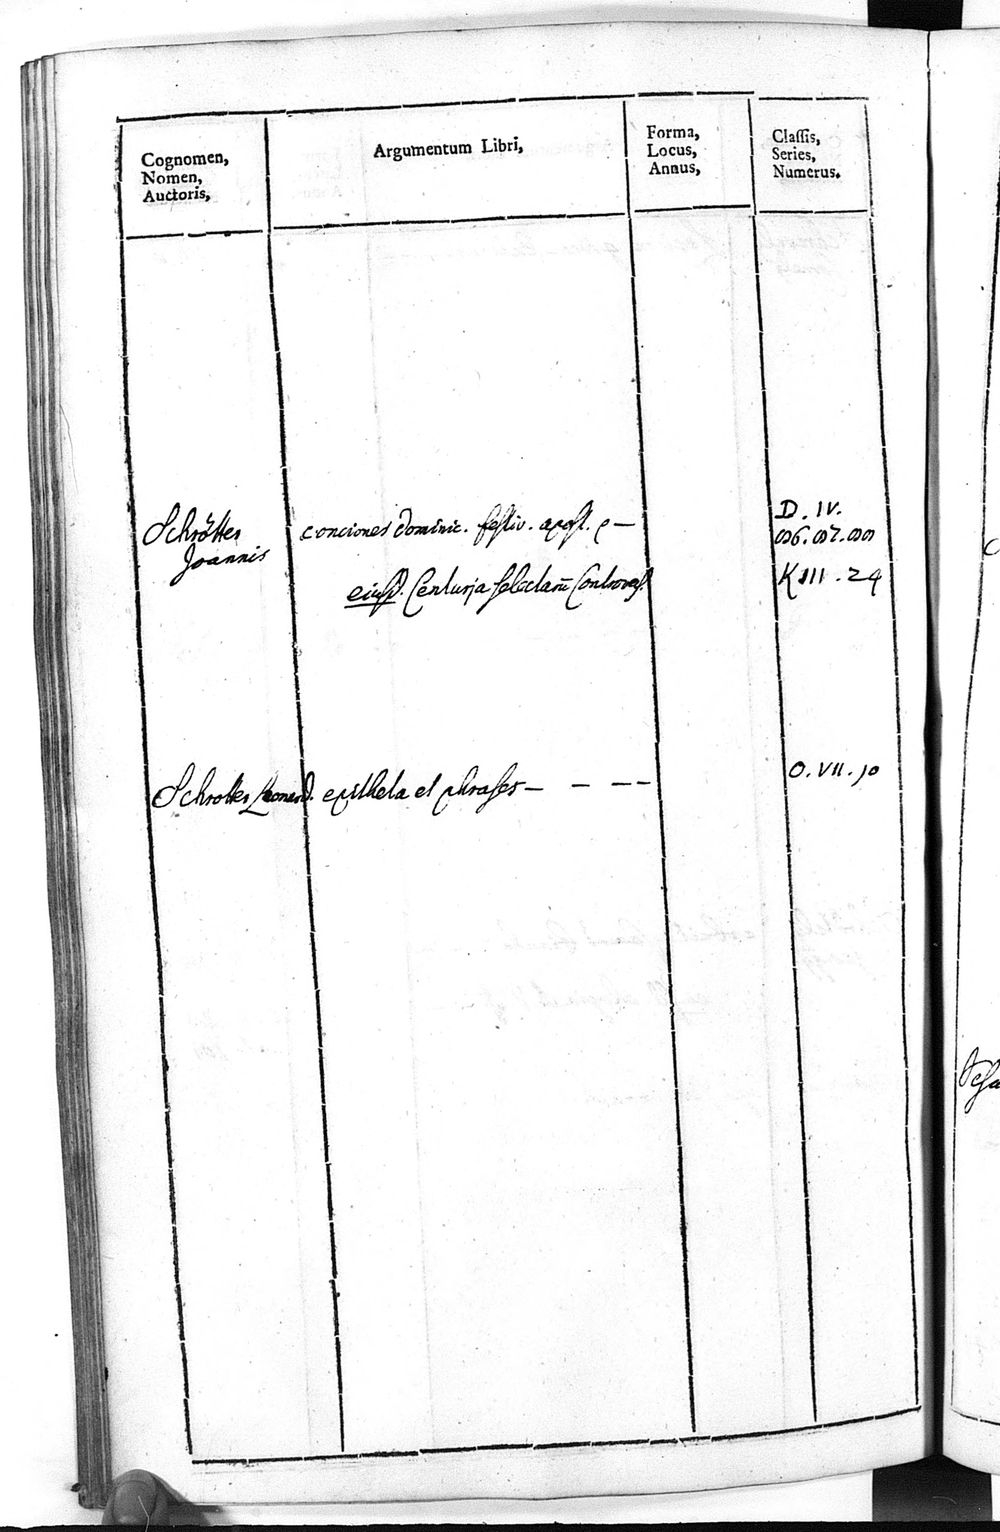 Cognomen,
Nomen,
Auctoris,
Argumentum Libri,
Forma,
Locus,
Annus,
Classis,
Series,
Numerus.
Schrötter
Joannis
conciones dominic. festiv.
D. IV.
eiusd. Centuria selectarū Controvers.
K III. 24
Schrotter Leonard. epitheta et phrases — — — —
O. VII. 10